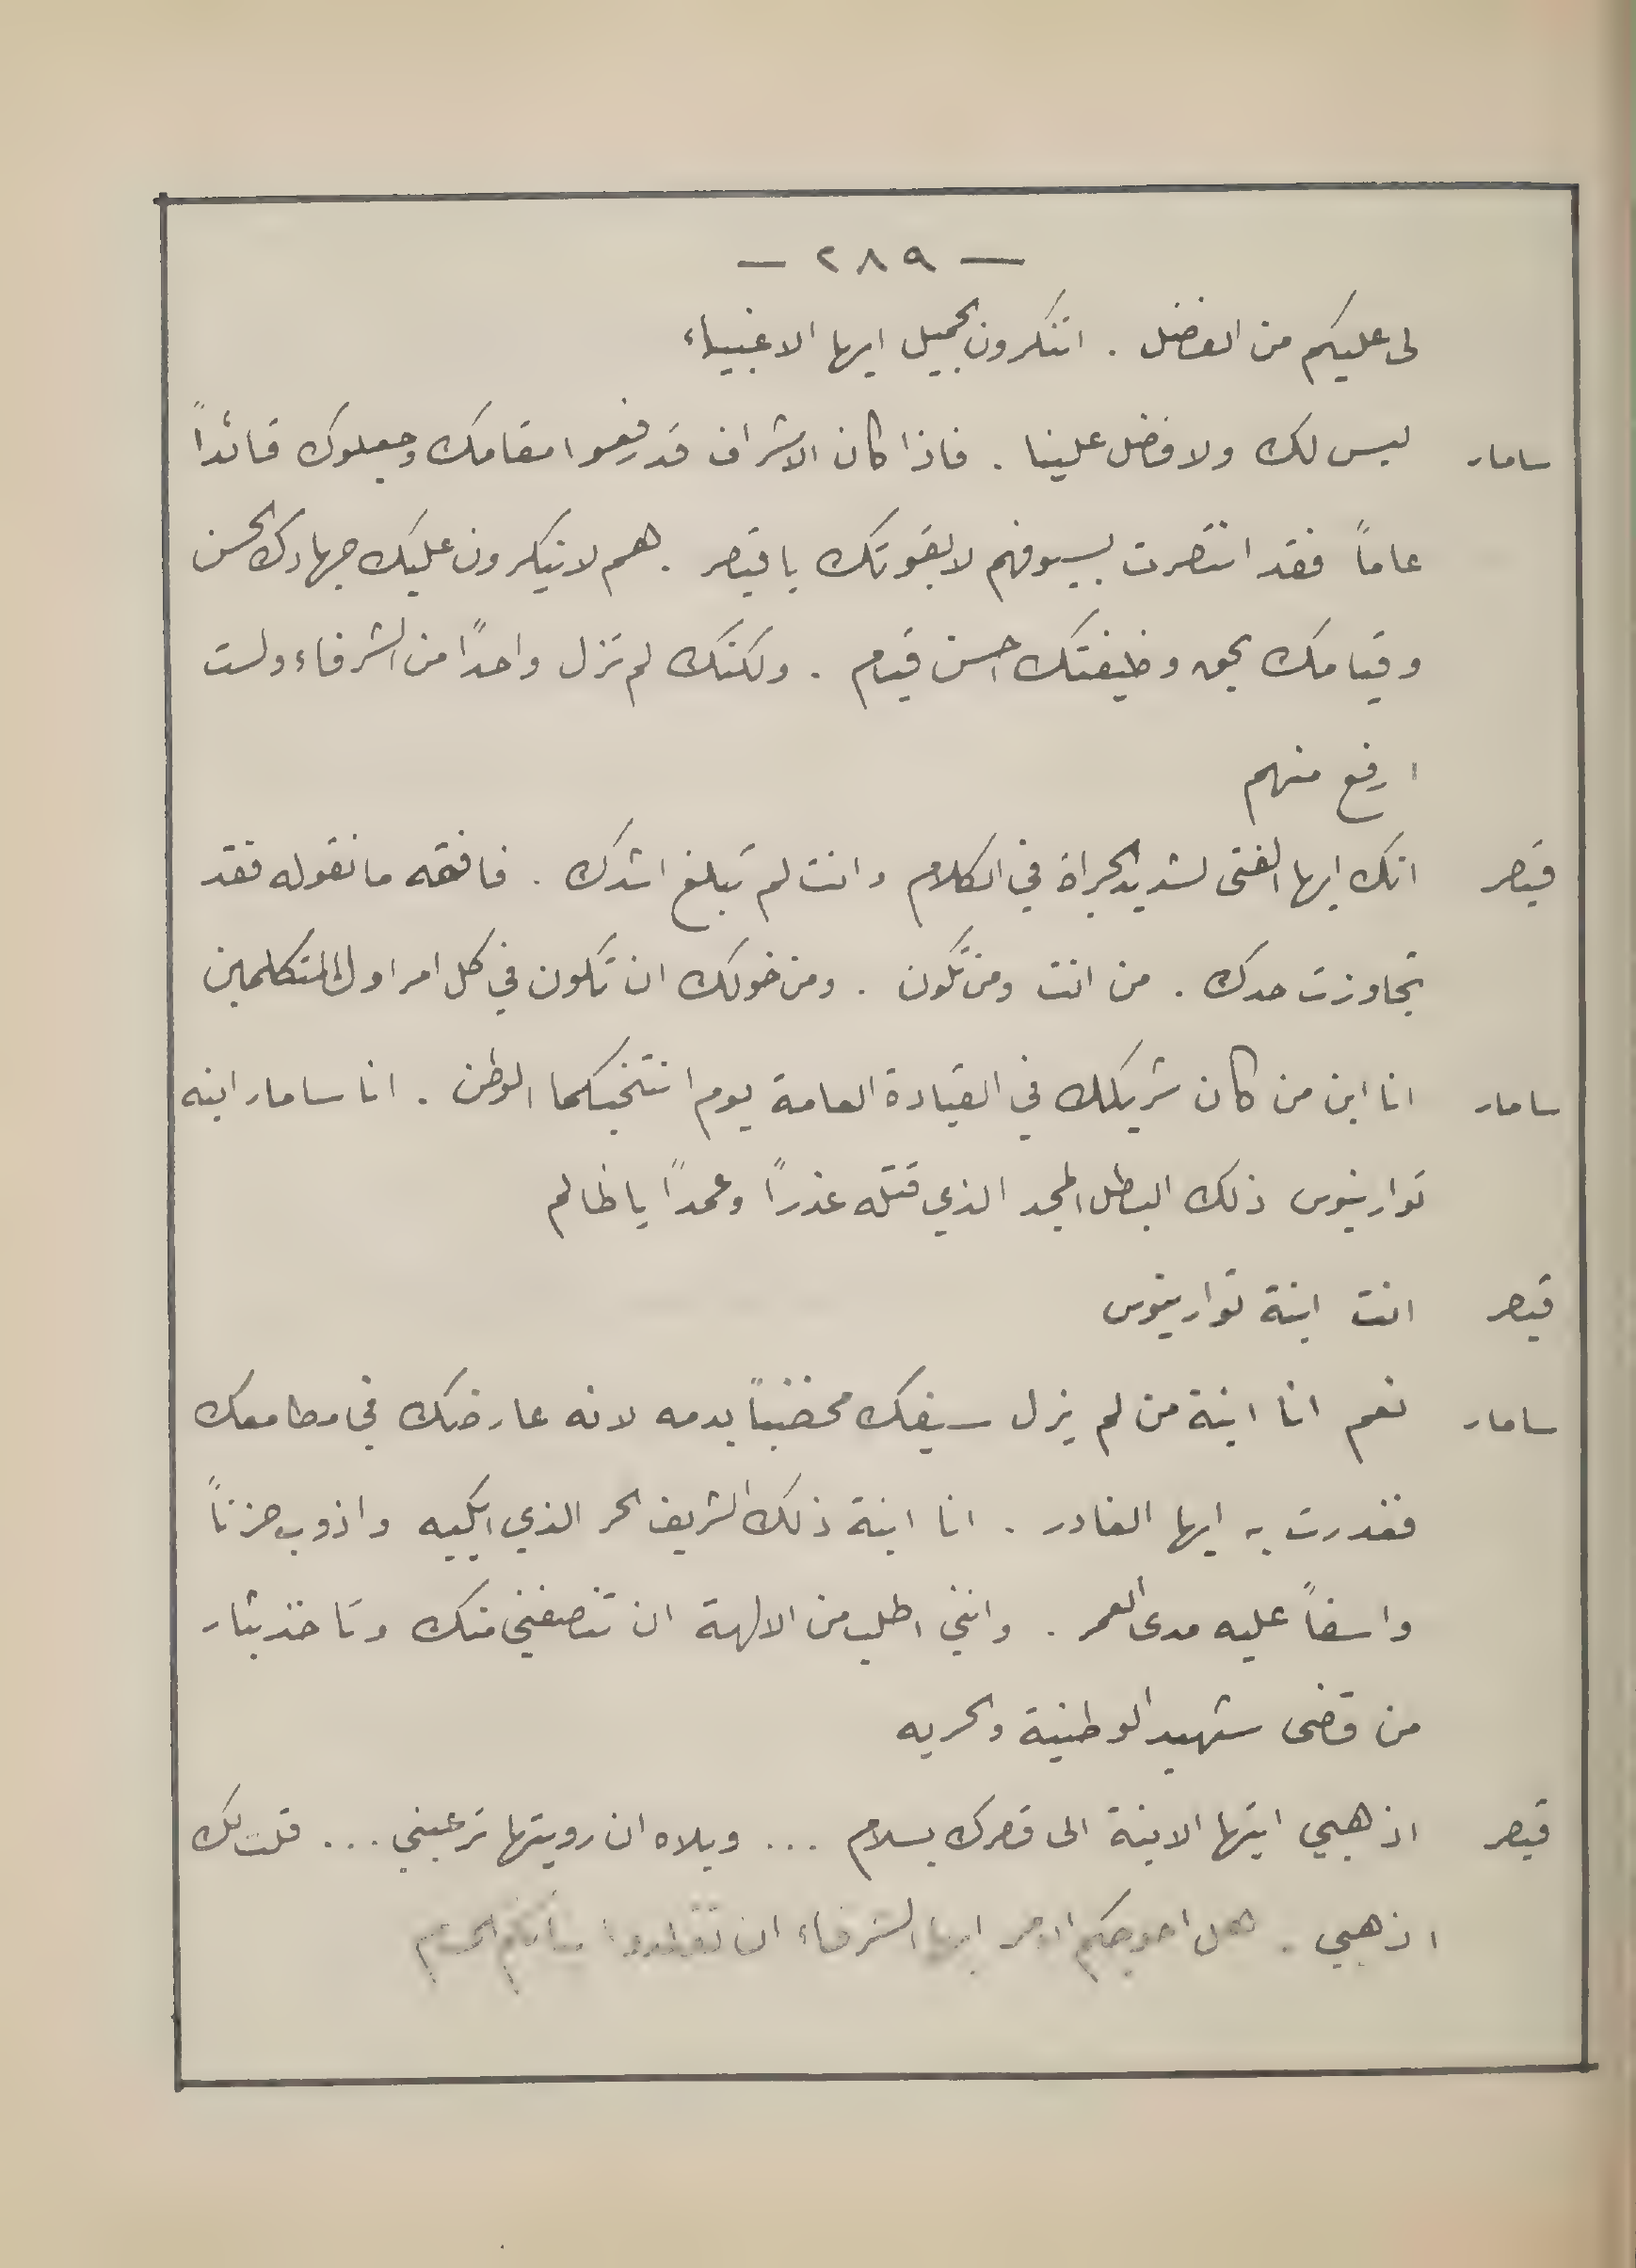 — ٢٨٩ —
لى عليكم من الفضل . اتنكرون الجميل ايها الاغبياء
سامار ليس لك ولا فضل علينا . فاذا كان الاشراف قد رفعوا مقامك وجعلوك قائداً
عاماً فقد انتصرت بسيوفهم لا بقوتك يا قيصر . هم لا ينكرون عليك جهادك الحسن
وقيامك بحق وظيفتك احسن قيام . ولكنك لم تزل واحداً من الشرفاء ولست
ارفع منهم
قيصر انك ايها الفتى لشديد الجراة في الكلام وانت لم تبلغ اشدك . فافقه ما تقوله فقد
تجاوزت حدك . من انت ومن تكون . ومن خولك ان تكون في كل امر اول المتكلمين
سامار انا ابن من كان شريكك في القيادة العامة يوم انتخبكما الوطن . انا سامار ابنه
توارينوس ذلك البطل المجد الذي قتله غدراً وعمداً يا ظالم
قيصر انت ابنة توارينوس
سامار نعم انا ابنة من لم يزل سيفك مخضباً بدمه لانه عارضك في مطامعك
فغدرت به ايها الغادر . انا ابنة ذلك الشريف الحر الذي ابكيه واذوب حزناً
واسفاً عليه مدى العمر . وانني اطلب من الالهة ان تنصفني منك وتاخذ بثار
من قضى شهيد الوطنية والحريه
قيصر اذهبي ايتها الابنة الى قصرك بسلام ... ويلاه ان رويتها ترعبني ... قلت لك
اذهبي . هل احوجكم الامر ايها الشرفاء ان